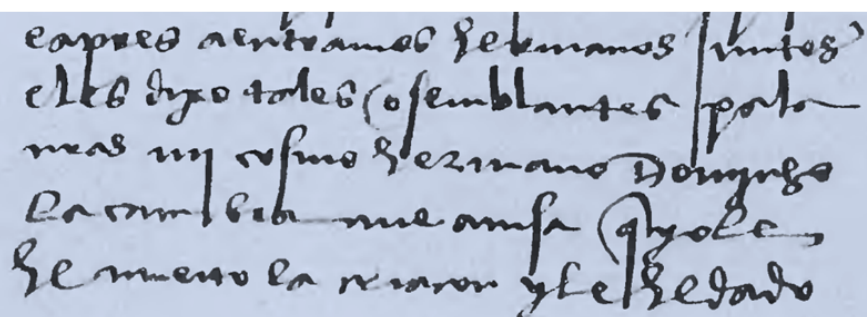 e apres a entrames hermanos juntos
e les dixo tales o semblantes pala
uras mi cosino hermano Dominho
la cambra me auisa q yo le
he muerto la criaçon y le he dado